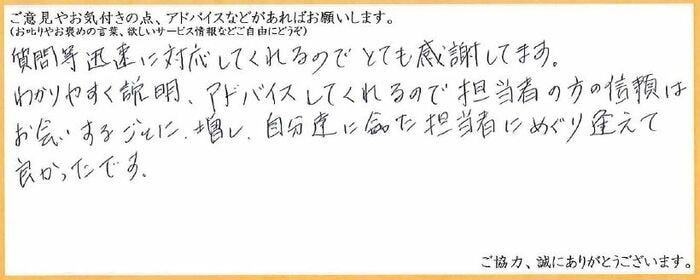 ご意見やお気付きの点、アドバイスなどがあればお願いします。
(お叱りやお褒めの言葉、欲しいサービス情報などご自由にどうぞ)
質問等迅速に対応してくれるのでとても感謝してます。
わかりやすく説明、アドバイスしてくれるので担当者の方の信頼は
お会いするごとに、増し、自分達に合った担当者にめぐり逢えて
良かったです。
ご協力、誠にありがとうございます。